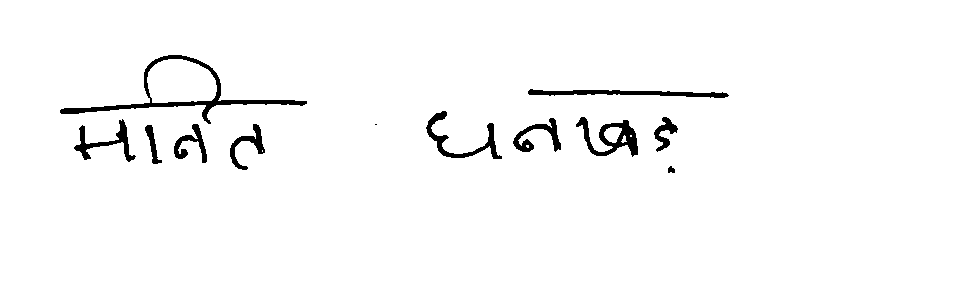 मानित धनखड़